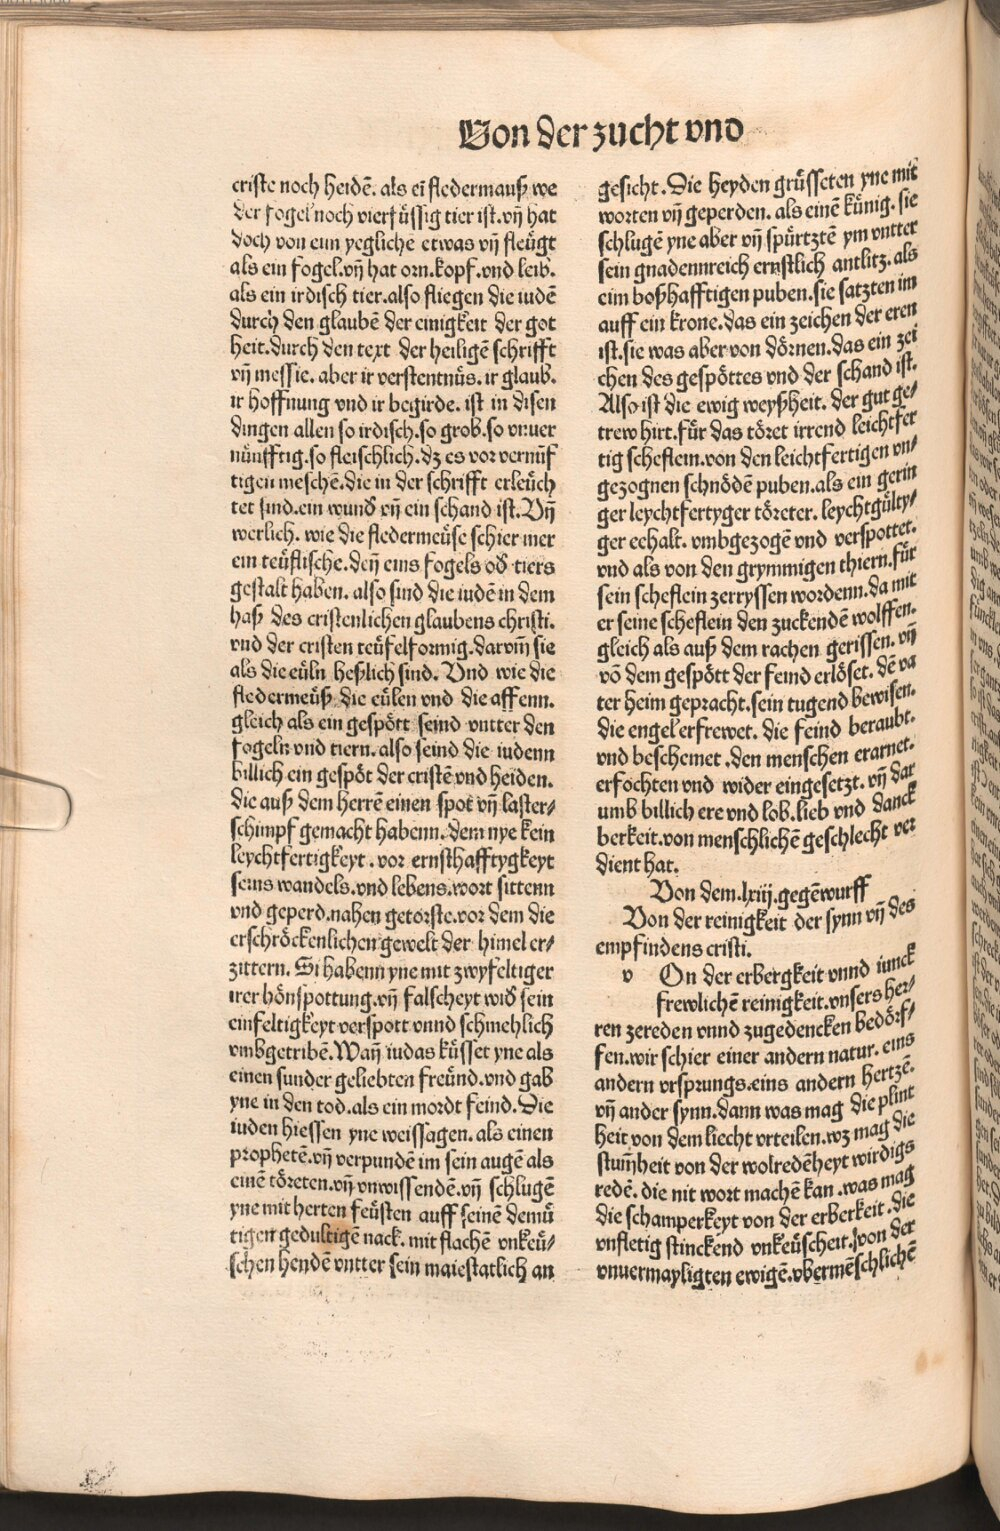 Von der zucht vnd
criste noch heidẽ. als eĩ fledermauß we
der fogel noch vierfüssig tier ist. vñ hat
doch von eim yegliche etwas vñ fleügt
als ein fogel. vñ hat orn. kopf. vnd leib.
als ein irdisch tier. also fliegen die iudẽ
durch den glaubẽ der einigkeit der got
heit. durch den text der heiligẽ schrifft
vñ messie. aber ir verstentnüs. ir glaub.
ir hoffnung vnd ir begirde. ist in disen
dingen allen so irdisch. so grob. so vnuer
nünfftig. so fleischlich. dz es vor vernünf
tigen meschẽ. die in der schrifft erleüch
tet sind. ein wundˢ vñ ein schand ist. Vñ
werlich. wie die fledermeüse schier mer
ein teüflische. deñ eins fogels odˢ tiers
gestalt haben. also sind die iudẽ in dem
haß des cristenlichen glaubens christi.
vnd der cristen teüfelformig. darvm̃ sie
als die eüln heßlich sind. Vnd wie die
fledermeüß. die eülen vnd die affenn.
gleich als ein gespött seind vntter den
fogeln vnd tiern. also seind die iudenn
billich ein gespöt der cristẽ vnd heiden.
die auß dem herrẽ einen spot vñ laster⸗
schimpf gemacht habenn. dem nye kein
leychtfertigkeyt. vor ernsthafftygkeyt
seins wandels. vnd lebens. wort sittenn
vnd geperd. nahen getorste. vor dem die
erschröckenlichen gewelt der himel er⸗
zittern. Si habenn yne mit zwyfeltiger
irer hönspottung. vñ falscheyt widˢ sein
einfeltigkeyt verspott vnnd schmehlich
vmbgetribẽ. Wañ iudas küsset yne als
einen sunder geliebten freünd. vnd gab
yne in den tod. als ein mordt feind. Die
iuden hiessen yne weissagen. als einen
prophetẽ. vñ verpundẽ im sein augẽ als
einẽ töreten. vñ vnwissendẽ. vñ schlugẽ
yne mit herten feüsten auff seinẽ demü
tigen gedultigẽ nack. mit flachẽ vnkeü⸗
schen hendẽ vntter sein maiestatlich an
gesicht. Die heyden grüsseten yne mit
worten vñ geperden. als einẽ künig. sie
schlugẽ yne aber vñ spürtztẽ ym vntter
sein gnadennreich ernstlich antlitz. als
eim boßhafftigen puben. sie satzten im
auff ein krone. das ein zeichen der eren
ist. sie was aber von dörnen. das ein zei
chen des gespöttes vnd der schand ist.
Also ist die ewig weyßheit. der gut ge⸗
trew hirt. für das töret irrend leichtfer
tig scheflein. von den leichtfertigen vn⸗
gezognen schnödẽ puben. als ein gerin
ger leychtfertyger töreter. leychtgülty⸗
ger eehalt. vmbgezogẽ vnd verspottet.
vnd als von den grymmigen thiern. für
sein scheflein zerryssen wordenn. da mit
er seine scheflein den zuckendẽ wolffen.
gleich als auß dem rachen gerissen. vñ
võ dem gespött der feind erlöset. dẽ va
ter heim gepracht. sein tugend bewisen.
die engel erfrewet. die feind beraubt.
vnd beschemet. den menschen erarnet.
erfochten vnd wider eingesetzt. vñ dar
umb billich ere vnd lob. lieb vnd danck
berkeit. von menschlichẽ geschlecht ver
dient hat.
Von dem. lxiij. gegẽwurff
Von der reinigkeit der synn vñ des
empfindens cristi.
v On der erbergkeit vnnd iunck
frewlichẽ reinigkeit. vnsers her⸗
ren zereden vnnd zugedencken bedörf⸗
fen. wir schier einer andern natur. eins
andern vrsprungs. eins andern hertzẽ.
vñ ander synn. dann was mag die plint
heit von dem liecht vrteilen. wz mag die
stum̃heit von der wolredẽheyt wirdigs
redẽ. die nit wort machẽ kan. was mag
die schamperkeyt von der erberkeit. die
vnfletig stinckend vnkeüscheit. von der
vnuermayligten ewigẽ. vbermẽschlichẽ